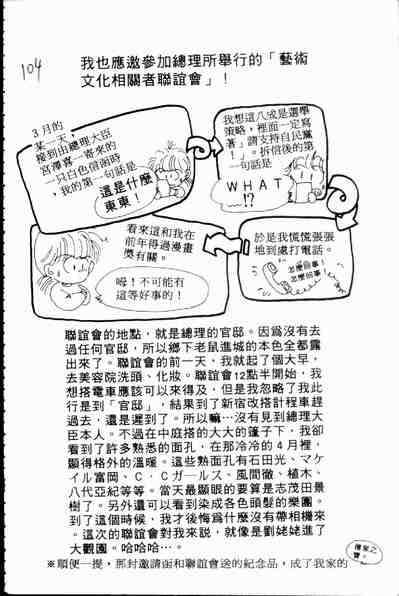 104
我也應邀參加總理所舉行的「藝術
文化相關者聯誼會」!
3月的
某一天,
接到由總理大臣
宮澤喜一寄來的
一只白色信函時
,我的第一句話是
這是什麼
東東!
我想這八成是選舉
策略,裡面一定寫
著「請支持自民黨
!」。拆信後的第
一句話是
WHAT
!?
於是我慌慌張張
地到處打電話。
怎麼回事!
怎麼回事!
看來這和我在
前年得過漫畫
獎有關。
哼!不可能有
這等好事的!
聯誼會的地點,就是總理的官邸。因爲沒有去
過任何官邸,所以鄉下老鼠進城的本色全都露
出來了。聯誼會的前一天,我就起了個大早,
去美容院洗頭、化妝。聯誼會12點半開始,我
想搭電車應該可以來得及,但是我忽略了我此
行是到「官邸」,結果到了新宿改搭計程車趕
過去,還是遲到了。所以嘛…沒有見到總理大
臣本人。不過在中庭搭的大大的篷子下,我卻
看到了許多熟悉的面孔,在那冷冷的4月裡,
顯得格外的溫暖。這些熟面孔有石田光、マケ
イル富岡、C・Cガールス、風間徹、植木、
八代亞紀等等。當天最顯眼的要算是志茂田景
樹了。另外還可以看到染成各色頭髮的樂團。
到了這個時候,我才後悔爲什麼沒有帶相機來
。這次的聯誼會對我來說,就像是劉姥姥進了
大觀園。哈哈哈…。
※順便一提,那封邀請函和聯誼會送的紀念品,成了我家的
傳家之
寶。